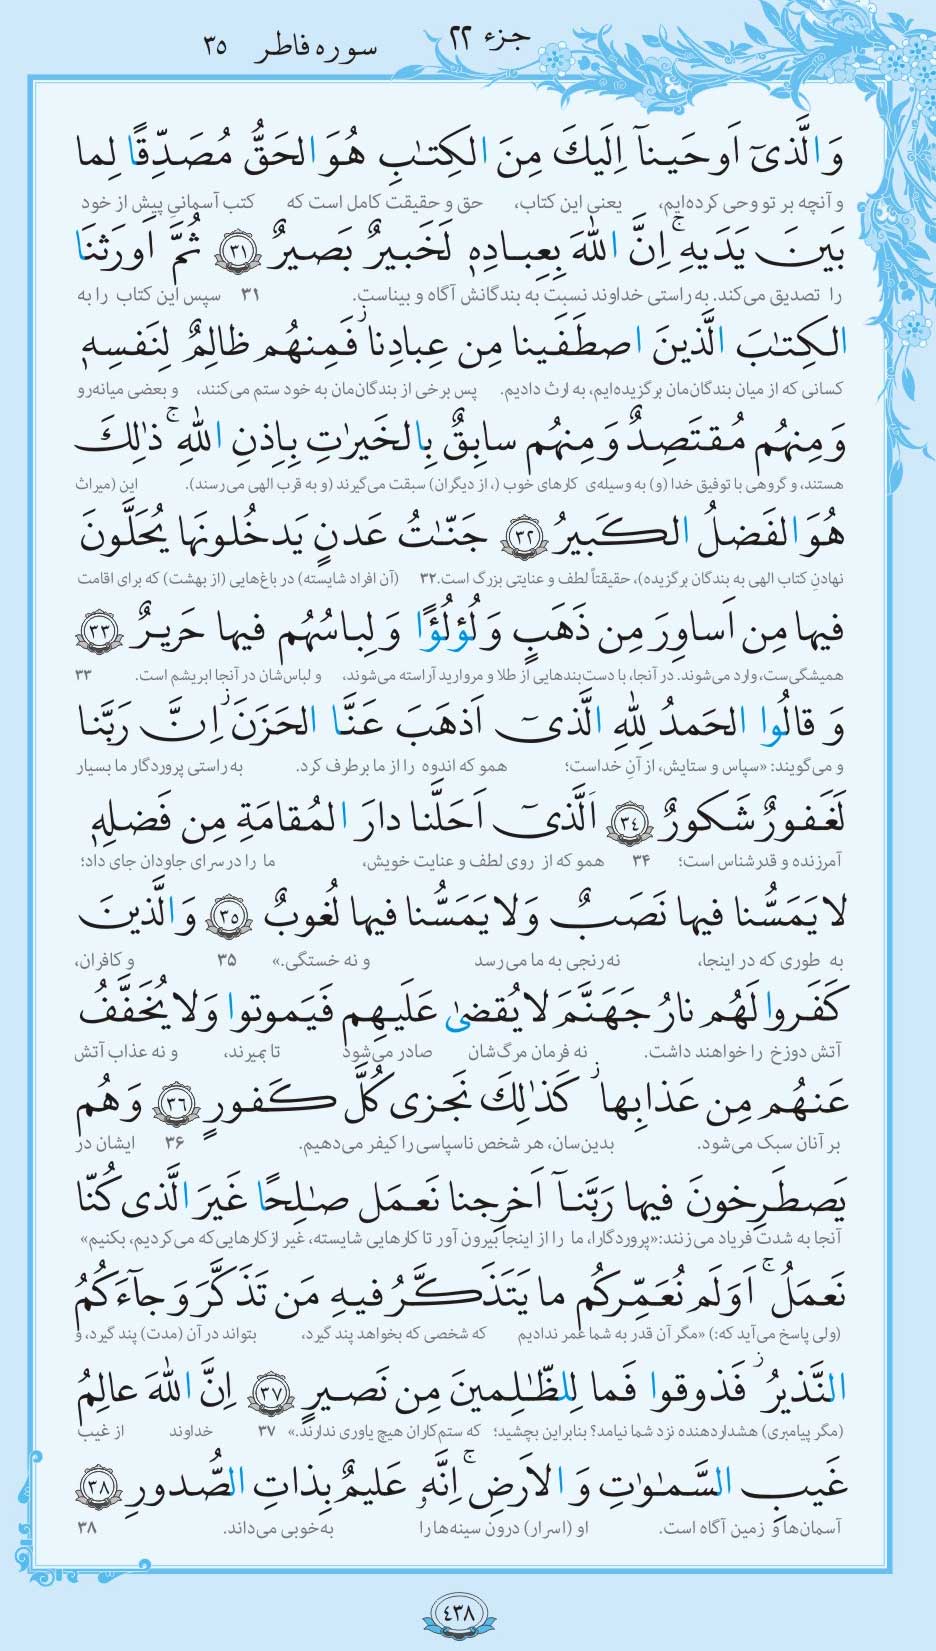 جزء ۲۲
سوره فاطر ۳۵
وَ الَّذیٓ اَوحَینآ اِلَیكَ مِنَ الكِتٰبِ هُوَ الحَقُّ مُصَدِّقًا لِما
و آنچه بر تو وحی کرده‌ایم، یعنی این کتاب، حق و حقیقت کامل است که کتب آسمانیِ پیش از خود
بَینَ یَدَیهِ ۚ اِنَّ اللهَ بِعِبادِهٖ لَخَبیرٌ بَصیرٌ ﴿٣١﴾ ثُمَّ اَورَثنَا
را تصدیق می‌کند. به راستی خداوند نسبت به بندگانش آگاه و بیناست. ۳۱ سپس این کتاب را به
الكِتٰبَ الَّذینَ اصطَفَینا مِن عِبادِنا ۖ فَمِنهُم ظالِمٌ لِنَفسِهٖ
کسانی که از میان بندگان‌مان برگزیده‌ایم، به ارث دادیم. پس برخی از بندگان‌مان به خود ستم می‌کنند، و بعضی میانه‌رو
وَ مِنهُم مُقتَصِدٌ وَ مِنهُم سابِقٌ بِالخَیرٰتِ بِاِذنِ اللهِ ۚ ذٰلِكَ
هستند، و گروهی با توفیق خدا (و) به وسیله‌ی کارهای خوب (، از دیگران) سبقت می‌گیرند (و به قرب الهی می‌رسند). این (میراث
هُوَ الفَضلُ الكَبیرُ ﴿٣٢﴾ جَنّٰتُ عَدنٍ یَدخُلونَها یُحَلَّونَ
نهادنِ کتاب الهی به بندگان برگزیده)، حقیقتاً لطف و عنایتی بزرگ است.۳۲ (آن افراد شایسته) در باغ‌هایی (از بهشت) که برای اقامت
فیها مِن اَساوِرَ مِن ذَهَبٍ وَ لُؤلُؤًا وَ لِباسُهُم فیها حَریرٌ ﴿٣٣﴾
همیشگی‌ست، وارد می‌شوند. در آنجا، با دست‌بندهایی از طلا و مروارید آراسته می‌شوند، و لباس‌شان در آنجا ابریشم است. ۳۳
وَ قالُوا الحَمدُ لِلّٰهِ الَّذیٓ اَذهَبَ عَنَّا الحَزَنَ ۖ اِنَّ رَبَّنا
و می‌گویند: «سپاس و ستایش، از آنِ خداست؛ همو که اندوه را از ما برطرف کرد. به راستی پروردگار ما بسیار
لَغَفورٌ شَكورٌ ﴿٣٤﴾ اَلَّذیٓ اَحَلَّنا دارَ المُقامَةِ مِن فَضلِهٖ
آمرزنده و قدرشناس است؛ ۳۴ همو که از روی لطف و عنایت خویش، ما را در سرای جاودان جای داد؛
لا یَمَسُّنا فیها نَصَبٌ وَ لا یَمَسُّنا فیها لُغوبٌ ﴿٣٥﴾ وَ الَّذینَ
به طوری که در اینجا، نه رنجی به ما می‌رسد و نه خستگی.» ۳۵ و کافران،
كَفَروا لَهُم نارُ جَهَنَّمَ لا یُقضیٰ عَلَیهِم فَیَموتوا وَ لا یُخَفَّفُ
آتش دوزخ را خواهند داشت. نه فرمان مرگ‌شان صادر می‌شود تا بمیرند، و نه عذاب آتش
عَنهُم مِن عَذابِها ۚ كَذٰلِكَ نَجزی كُلَّ كَفورٍ ﴿٣٦﴾ وَ هُم
بر آنان سبک می‌شود. بدین‌سان، هر شخص ناسپاسی را کیفر می‌دهیم. ۳۶ ایشان در
یَصطَرِخونَ فیها رَبَّنآ اَخرِجنا نَعمَل صٰلِحًا غَیرَ الَّذی كُنّا
آنجا به شدت فریاد می‌زنند:«پروردگارا، ما را از اینجا بیرون آور تا کارهایی شایسته، غیر از کارهایی که می‌کردیم، بکنیم»
نَعمَلُ ۚ اَوَلَم نُعَمِّركُم ما یَتَذَكَّرُ فیهِ مَن تَذَكَّرَ وَ جآءَكُمُ
(ولی پاسخ می‌آید که:) «مگر آن قدر به شما عمر ندادیم که شخصی که بخواهد پند گیرد، بتواند در آن (مدت) پند گیرد، و
النَّذیرُ ۖ فَذوقوا فَما لِلظّٰلِمینَ مِن نَصیرٍ ﴿٣٧﴾ اِنَّ اللهَ عالِمُ
(مگر پیامبری) هشداردهنده نزد شما نیامد؟ بنابراین بچشید؛ که ستم‌کاران هیچ یاوری ندارند.» ۳۷ خداوند از غیب
غَیبِ السَّمٰوٰتِ وَ الاَرضِ ۚ اِنَّهٗ عَلیمٌ بِذاتِ الصُّدورِ ﴿٣٨﴾
آسمان‌ها و زمین آگاه است. او (اسرار) درون سینه‌ها را به‌خوبی می‌داند. ۳۸
٤٣٨